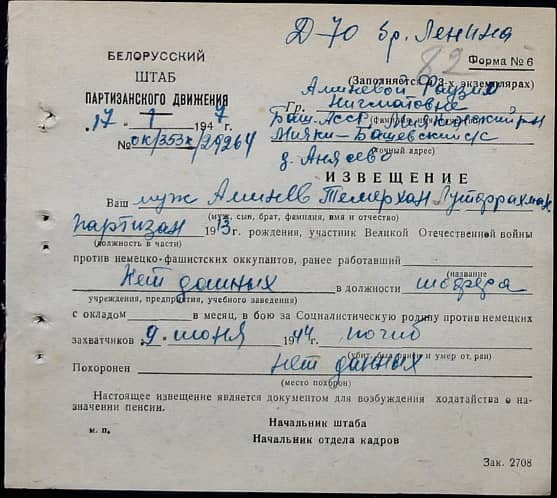 Д-70 бр. Ленина
82
БЕЛОРУССКИЙ
ШТАБ
ПАРТИЗАНСКОГО ДВИЖЕНИЯ
Форма № 6
(Заполняется в 3-х экземплярах)
Аминевой
Гр. Нигматовне
17 1 1947 г.
Баш. АССР
(фамилия
Мияки-
№ ок/353к/29264
д. Анясево
точный адрес)
ИЗВЕЩЕНИЕ
Ваш муж Аминев Темерхан
(муж, сын, брат, фамилия, имя и отчество)
партизан 1913 г. рождения, участник Великой Отечественной войны
(должность в части)
против немецко-фашистских оккупантов, ранее работавший
(название
нет данных в должности шофера
учреждения, предприятия, учебного заведения)
с окладом в месяц, в бою за Социалистическую родину против немецких
захватчиков 9 июня 1944 погиб
(убит, был ранен и умер от ран)
Похоронен нет данных
(место похорон)
Настоящее извещение является документом для возбуждения ходатайства о на-
значении пенсии.
Начальник штаба
м. п.
Начальник отдела кадров
Зак. 2708